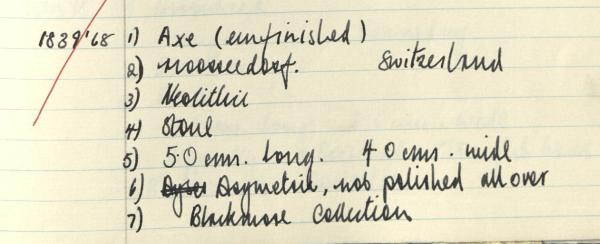 1839/'68 1) Axe (unfinished)
2) Moosseedorf. Switzerland
3) Neolithic
4) Stone
5) 5.0 cms. long. 4.0 cms. wide
6) Asymetric, not polished all over
7) Blackmore Collection